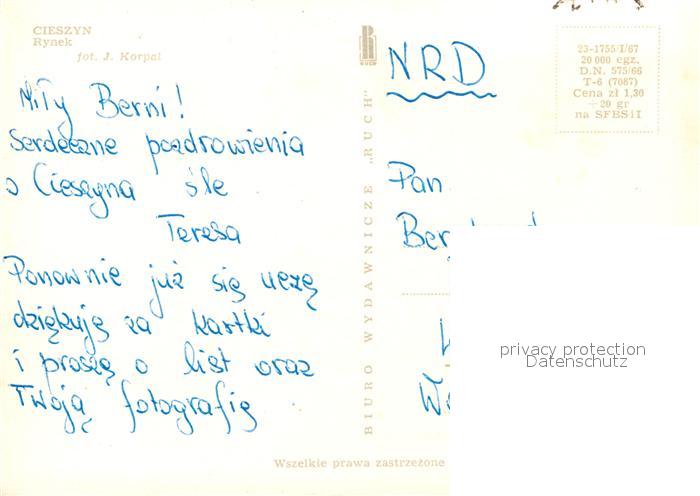 CIESZYN
Rynek
fot. J. Korpal
Miły Berni!
Serdeczne pozdrowienia
z Cieszyna śle
Teresa
Ponownie już się uczę
dziękuję za kartki
i proszę o list oraz
Twoją fotografię
BIURO WYDAWNICZE „RUCH"
RUCH
NRD
Pan
23-1755/I/67
20 000 egz.
D.N. 575/66
T-6 (7087)
Cena zł 1,30
+ 20 gr
na SFBSiI
privacy protection
Datenschutz
Wszelkie prawa zastrzeżone